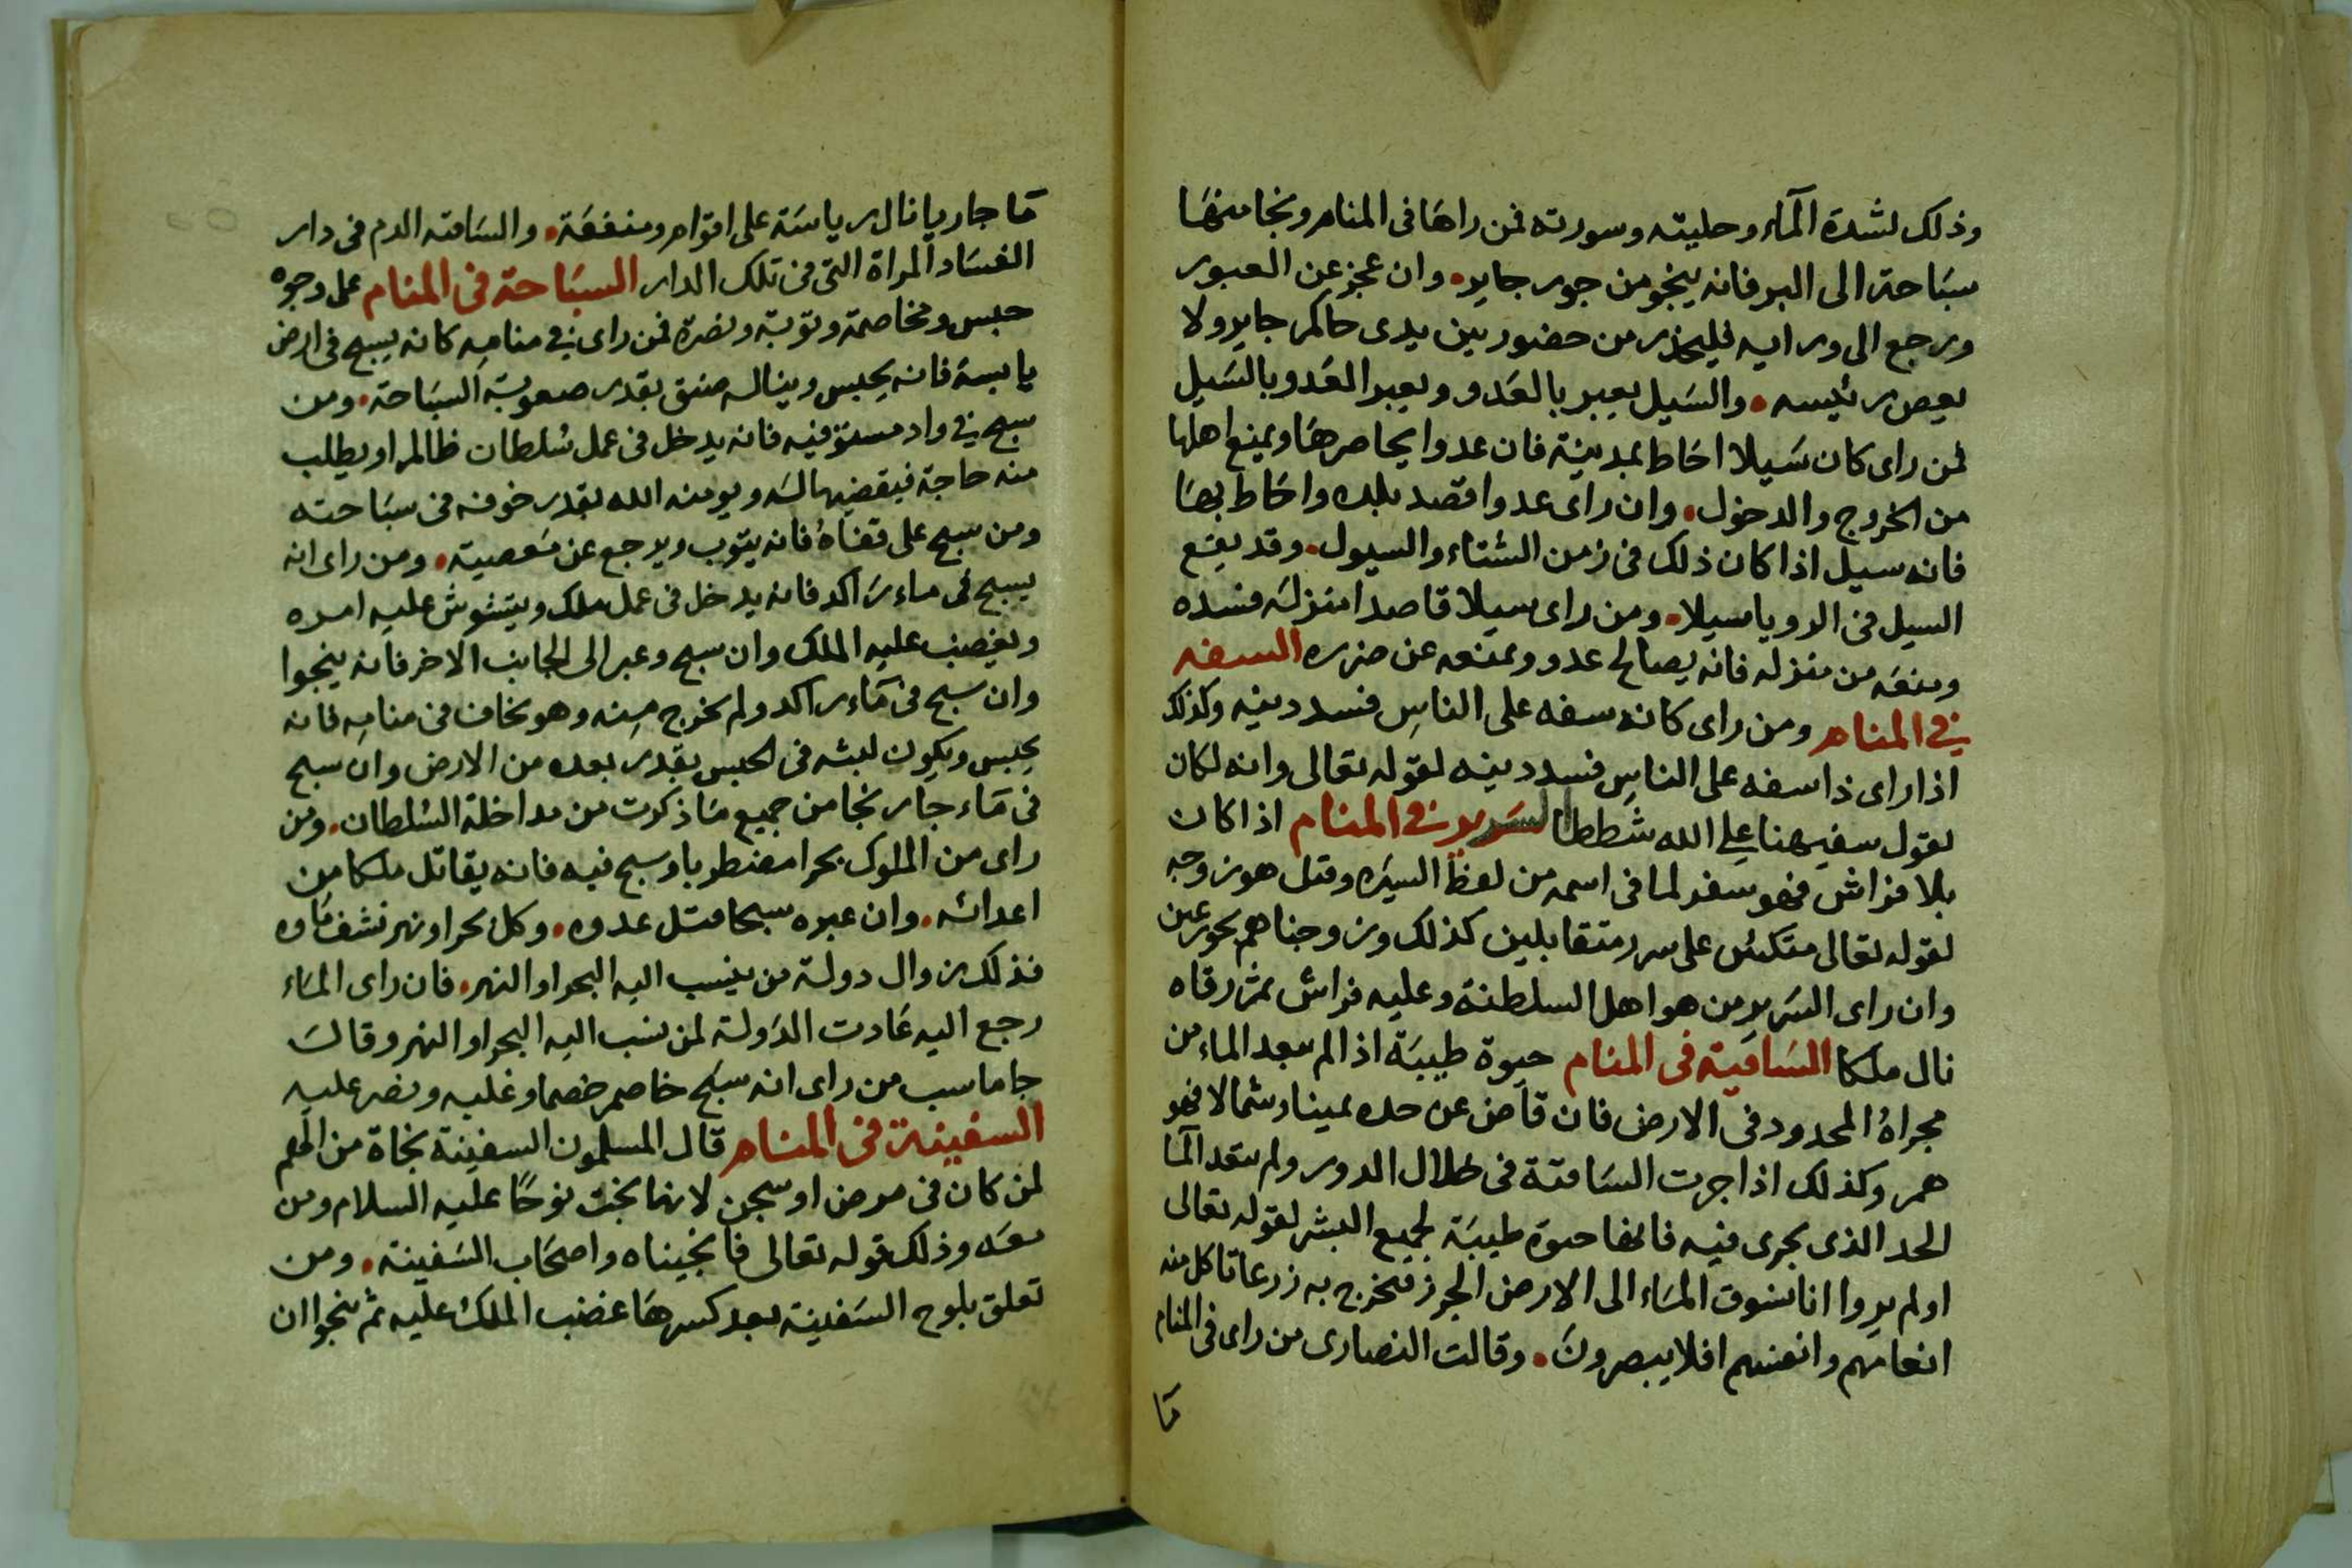 وذلك لشدة المآء وحليته وسورته فمن راهَا فى المنام ونجا منهَا
سبَاحة الى البر فانه ينجو من جور جاير، وان عجز عن العبور
ورجع الى ورايه فليحذر من حضور بين يدى حاكم جاير ولا
بعص رئيسه، والسَيل يعبر بالعَدو ويعبر العَدو بالسَيل
لمن راى كان سَيلا احَاط بمدينة فان عدوا يحاصرهَا ويمنع اهلها
من الخروج والدخول، وان راى عدوا قصد بلده واحَاط بهَا
فانه سيل اذا كان ذلك فى زمن الشتاء والسيول، وقد يقع
السيل فى الرويا سيلا، ومن راى سيلا قاصدا منزله فسده
ومنعَه من منزله فانه يصالح عدو ويمنعه عن ضرره السفه
فى المنام ومن راى كانه سفه على الناس فسد دينه وكذلك
اذا راى ذا سفه على الناس فسد دينه لقوله تعالى وانه لكان
يقول سفيهنا على الله شططا السَرير فى المنام اذا كان
بلا فراش فهو سفر لما فى اسمه من لفظ السيَره وقيل هو زوجه
لقوله تعالى متكئين على سرر متقابلين كذلك وزوجناهم بحور عين
وان راى السَرير من هو اهل السلطنة وعليه فراش ثم رقاه
نال ملكا السَاقية فى المنام حيوة طيبَة اذا لم يبعد الماء من
مجراهُ المحدود فى الارض فان فاض عن حده يمينا وشمالا فهو
هم وكذلك اذا جرت السَاقية فى خلال الدور ولم يتعد المآ
الحد الذى يجرى فيه فانها حيوة طيبَة لجميع البشر لقوله تعالى
اولم يروا انا نسوق المَاء الى الارض الجرز فنخرج به زرعا تاكل منه
انعامهم وانفسهم افلا يبصرونَ، وقالت النصارى من راى فى المنام
مَا
مَا جاريا نال رياسَة على اقوام ومنفعَة، والسَاقيه الدم فى دار
الفسَاد المراة التى فى تلك الدار السبَاحة فى المنام على وجوه
حبس ومخاصمة وتوبة ونصرة فمن راى فى منامه كانه يسبح فى ارض
يابسة فانه يحبس ويناله ضيق بقدر صعوبة السبَاحة، ومن
سبح فى واد مستو فيه فانه يدخل فى عمل سُلطان ظالم او يطلب
منه حاجة فيقضيها لَه ويومنه الله بقدر خوفه فى سبَاحته
ومن سبح على قفاهُ فانه يتوب ويرجع عن مَعصيته، ومن راى انه
يسبح فى ماء رَاكد فانه يدخل فى عمل ملك ويتشوش عليه امره
ويغضب عليه الملك وان سبح وعبر الى الجانب الاخر فانه ينجوا
وان سبح فى مَاء راكد ولم يخرج منه وهو يخاف فى منامه فانه
يحبس ويكون لبثه فى الحبس بقدر بعده من الارض وان سبح
فى مَاء جار نجا من جميع مَا ذكرت من مداخلة السُلطان، ومن
راى من الملوك بحرا مضطربا وسبح فيه فانه يقاتل ملكا من
اعدائه، وان عبره سبحا قتل عدوه، وكل بحر او نهر نشف مَاوه
فذلك زوال دولة من ينسب اليه البحر او النهر، فان راى المَاء
رجع اليه عَادت الدَولة لمن نسب اليه البحر او النهر وقال
جاماسب من راى انه سبَح خاصم خصما وغلبه ونصر عليه
السفينة فى المنام قال المسلمون السفينة نجاة من الهم
لمن كان فى مرض او سجن لانها نجت نوحًا عليه السلام ومن
معَه وذلك قوله تعالى فانجيناه واصحَاب السَفينة، ومن
تعلق بلوح السَفينة بعد كسرهَا غضب الملك عليه ثم ينجوا ان